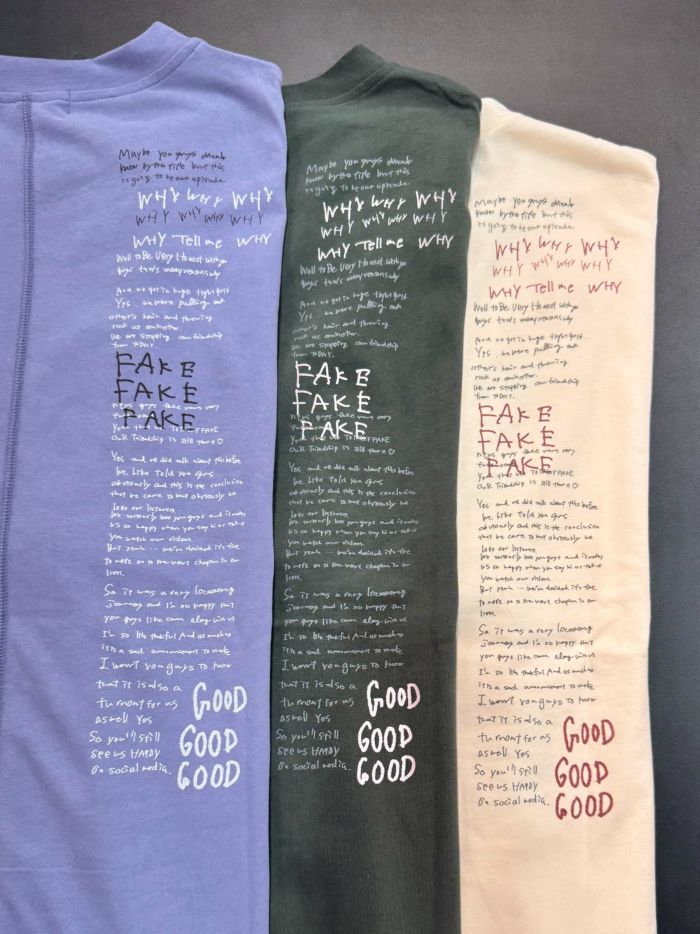 Maybe you guys
know by the title but this
is going to be our episode
WHY WHY WHY
WHY WHY WHY WHY
WHY Tell me WHY
Well to Be Very Honest with
guys there's many reasons why
And we got in huge
Yes, we were pulling
other's hair and throwing
rock at eachother.
We are stopping our friendship
from DAY.
FAKE
FAKE
FAKE
OUR Friendship is still there ♡
Yes and we did talk about this before
We Like Told you guys
obviously and this is the conclusion
that we came to but obviously we
love our listeners
We seriously love you guys and it makes
us so happy when you say hi or
you watch our videos.
But yeah ... we've decided it's time
to move on to new chapter in our
lives.
So it was a very
journey and I'm so happy that
you guys like came along with us
I'm so like thankful And as much as
it's a sad announcement to make
I won't you guys to know
that it is also a
turnout for us
as well Yes
So you'll still
see us HAPPY
On social media.
GOOD
GOOD
GOOD
Maybe you guys
know by the title but this
is going to be our episode
WHY WHY WHY
WHY WHY WHY WHY
WHY Tell me WHY
Well to Be Very Honest with
guys there's many reasons why
And we got in huge
Yes, we were pulling
other's hair and throwing
rock at eachother.
We are stopping our friendship
from DAY.
FAKE
FAKE
FAKE
OUR Friendship is still there ♡
Yes and we did talk about this before
We Like Told you guys
obviously and this is the conclusion
that we came to but obviously we
love our listeners
We seriously love you guys and it makes
us so happy when you say hi or
you watch our videos.
But yeah ... we've decided it's time
to move on to new chapter in our
lives.
So it was a very
journey and I'm so happy that
you guys like came along with us
I'm so like thankful And as much as
it's a sad announcement to make
I won't you guys to know
that it is also a
turnout for us
as well Yes
So you'll still
see us HAPPY
On social media.
GOOD
GOOD
GOOD
Maybe you guys
know by the title but this
is going to be our episode
WHY WHY WHY
WHY WHY WHY WHY
WHY Tell me WHY
Well to Be Very Honest with
guys there's many reasons why
And we got in huge
Yes, we were pulling
other's hair and throwing
rock at eachother.
We are stopping our friendship
from DAY.
FAKE
FAKE
FAKE
OUR Friendship is still there ♡
Yes and we did talk about this before
We Like Told you guys
obviously and this is the conclusion
that we came to but obviously we
love our listeners
We seriously love you guys and it makes
us so happy when you say hi or
you watch our videos.
But yeah ... we've decided it's time
to move on to new chapter in our
lives.
So it was a very
journey and I'm so happy that
you guys like came along with us
I'm so like thankful And as much as
it's a sad announcement to make
I won't you guys to know
that it is also a
turnout for us
as well Yes
So you'll still
see us HAPPY
On social media.
GOOD
GOOD
GOOD